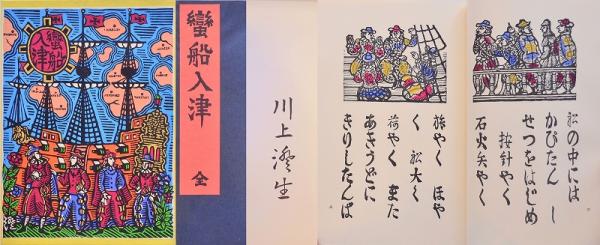 蠻船
入津
蠻船入津
全
川上澄生
旅やく ほや
く 船大く
荷やく また
あきうどに
きりしたんば
船の中には
かぴたん し
せつをはじめ
按針やく
石火矢やく